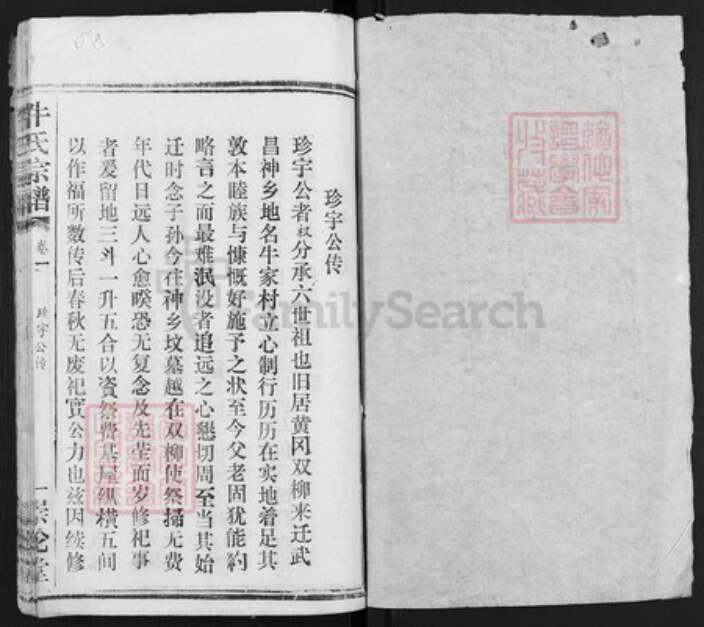 珍宇公传
珍宇公者权分承六世祖也旧居黄冈双柳来迁武
昌神乡地名牛家村立心制行历历在实地着足其
敦本睦族与慷慨好施予之状至今父老固犹能约
略言之而最难泯没者追远之心恳切周至当其始
迁时念子孙今在神乡坟墓越在双柳使祭扫无费
年代日远人心愈暌恐无复念及先茔而岁修祀事
者爰留地三斗一升五合以资祭费基屋纵横五间
以作福所数传后春秋无废祀实公力也兹因续修
牛氏宗谱
卷一
珍宇公传
一
堂
FamilySearch